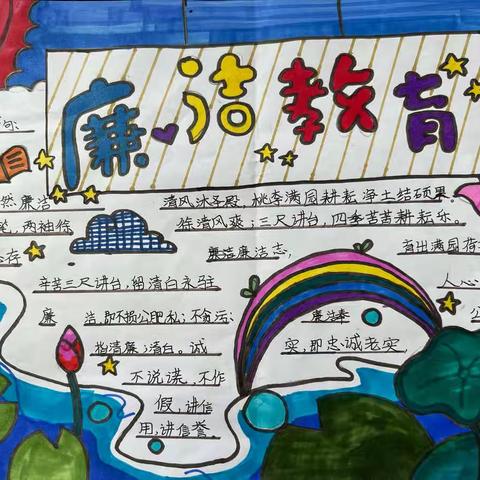 廉洁教育
句:
目
然 廉洁
清风冰子殿,桃李满园耕耘净土结硕果。
两袖徐
徐清风爽;三尺讲台,四季苦苦耕耘乐。
存
廉洁廉洁志,
育出满园荷
辛苦三尺讲台,留清白永驻
人心
廉 洁,即不损公肥私;不贪污;
廉洁奉
公
清廉;清白。诚
实,即忠诚老实
不说谎,不作
假,讲信
用,讲信誉